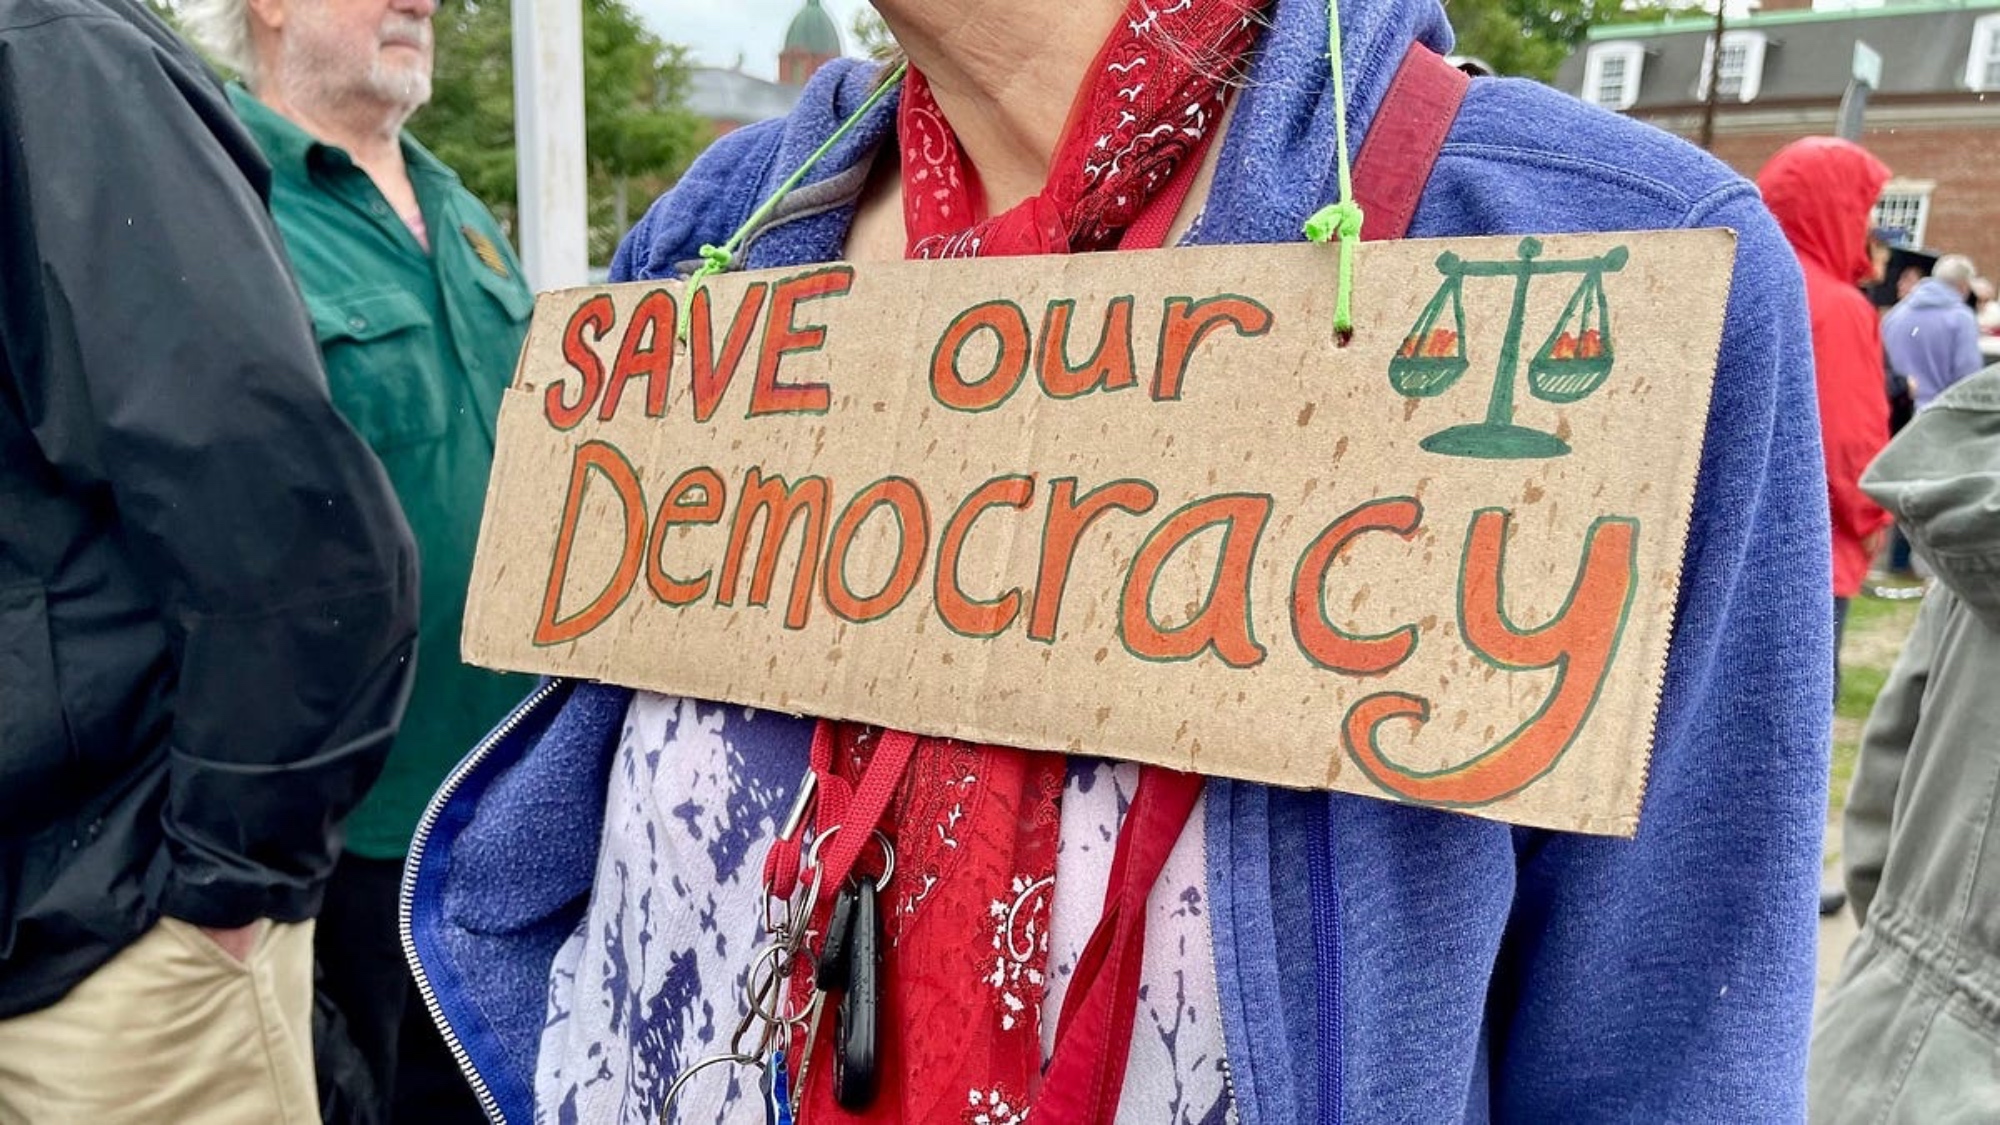 SAVE our
Democracy